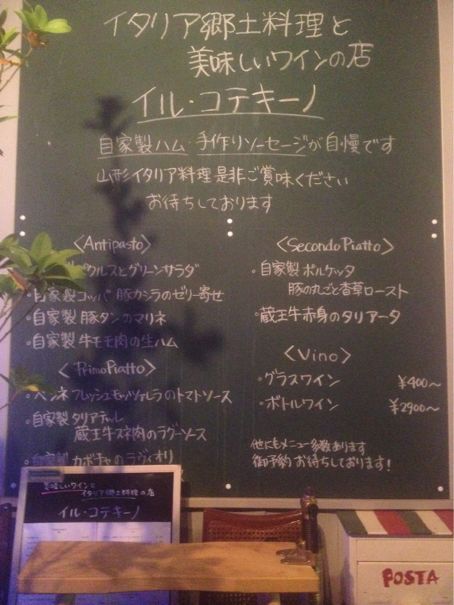 イタリア郷土料理と
美味しいワインの店
イル・コテキーノ
自家製ハム・手作りソーセージが自慢です
山形イタリア料理是非ご賞味ください
お待ちしております
〈Antipasto〉
ピクルスとグリーンサラダ
・自家製コッパ 豚カシラのゼリー寄せ
・自家製 豚タンのマリネ
・自家製 牛モモ肉の生ハム
〈PrimoPiatto〉
・ペンネ フレッシュモッツァレラのトマトソース
・自家製 タリアテッレ
蔵王牛スネ肉のラグーソース
・自家製 カボチャのラヴィオリ
〈SecondoPiatto〉
・自家製 ポルケッタ
豚の丸ごと香草ロースト
・蔵王牛赤身のタリアータ
〈Vino〉
・グラスワイン ¥400〜
・ボトルワイン ¥2900〜
他にもメニュー多数あります
御予約お待ちしております!
美味しいワインと
イタリア郷土料理の店
イル・コテキーノ
POSTA